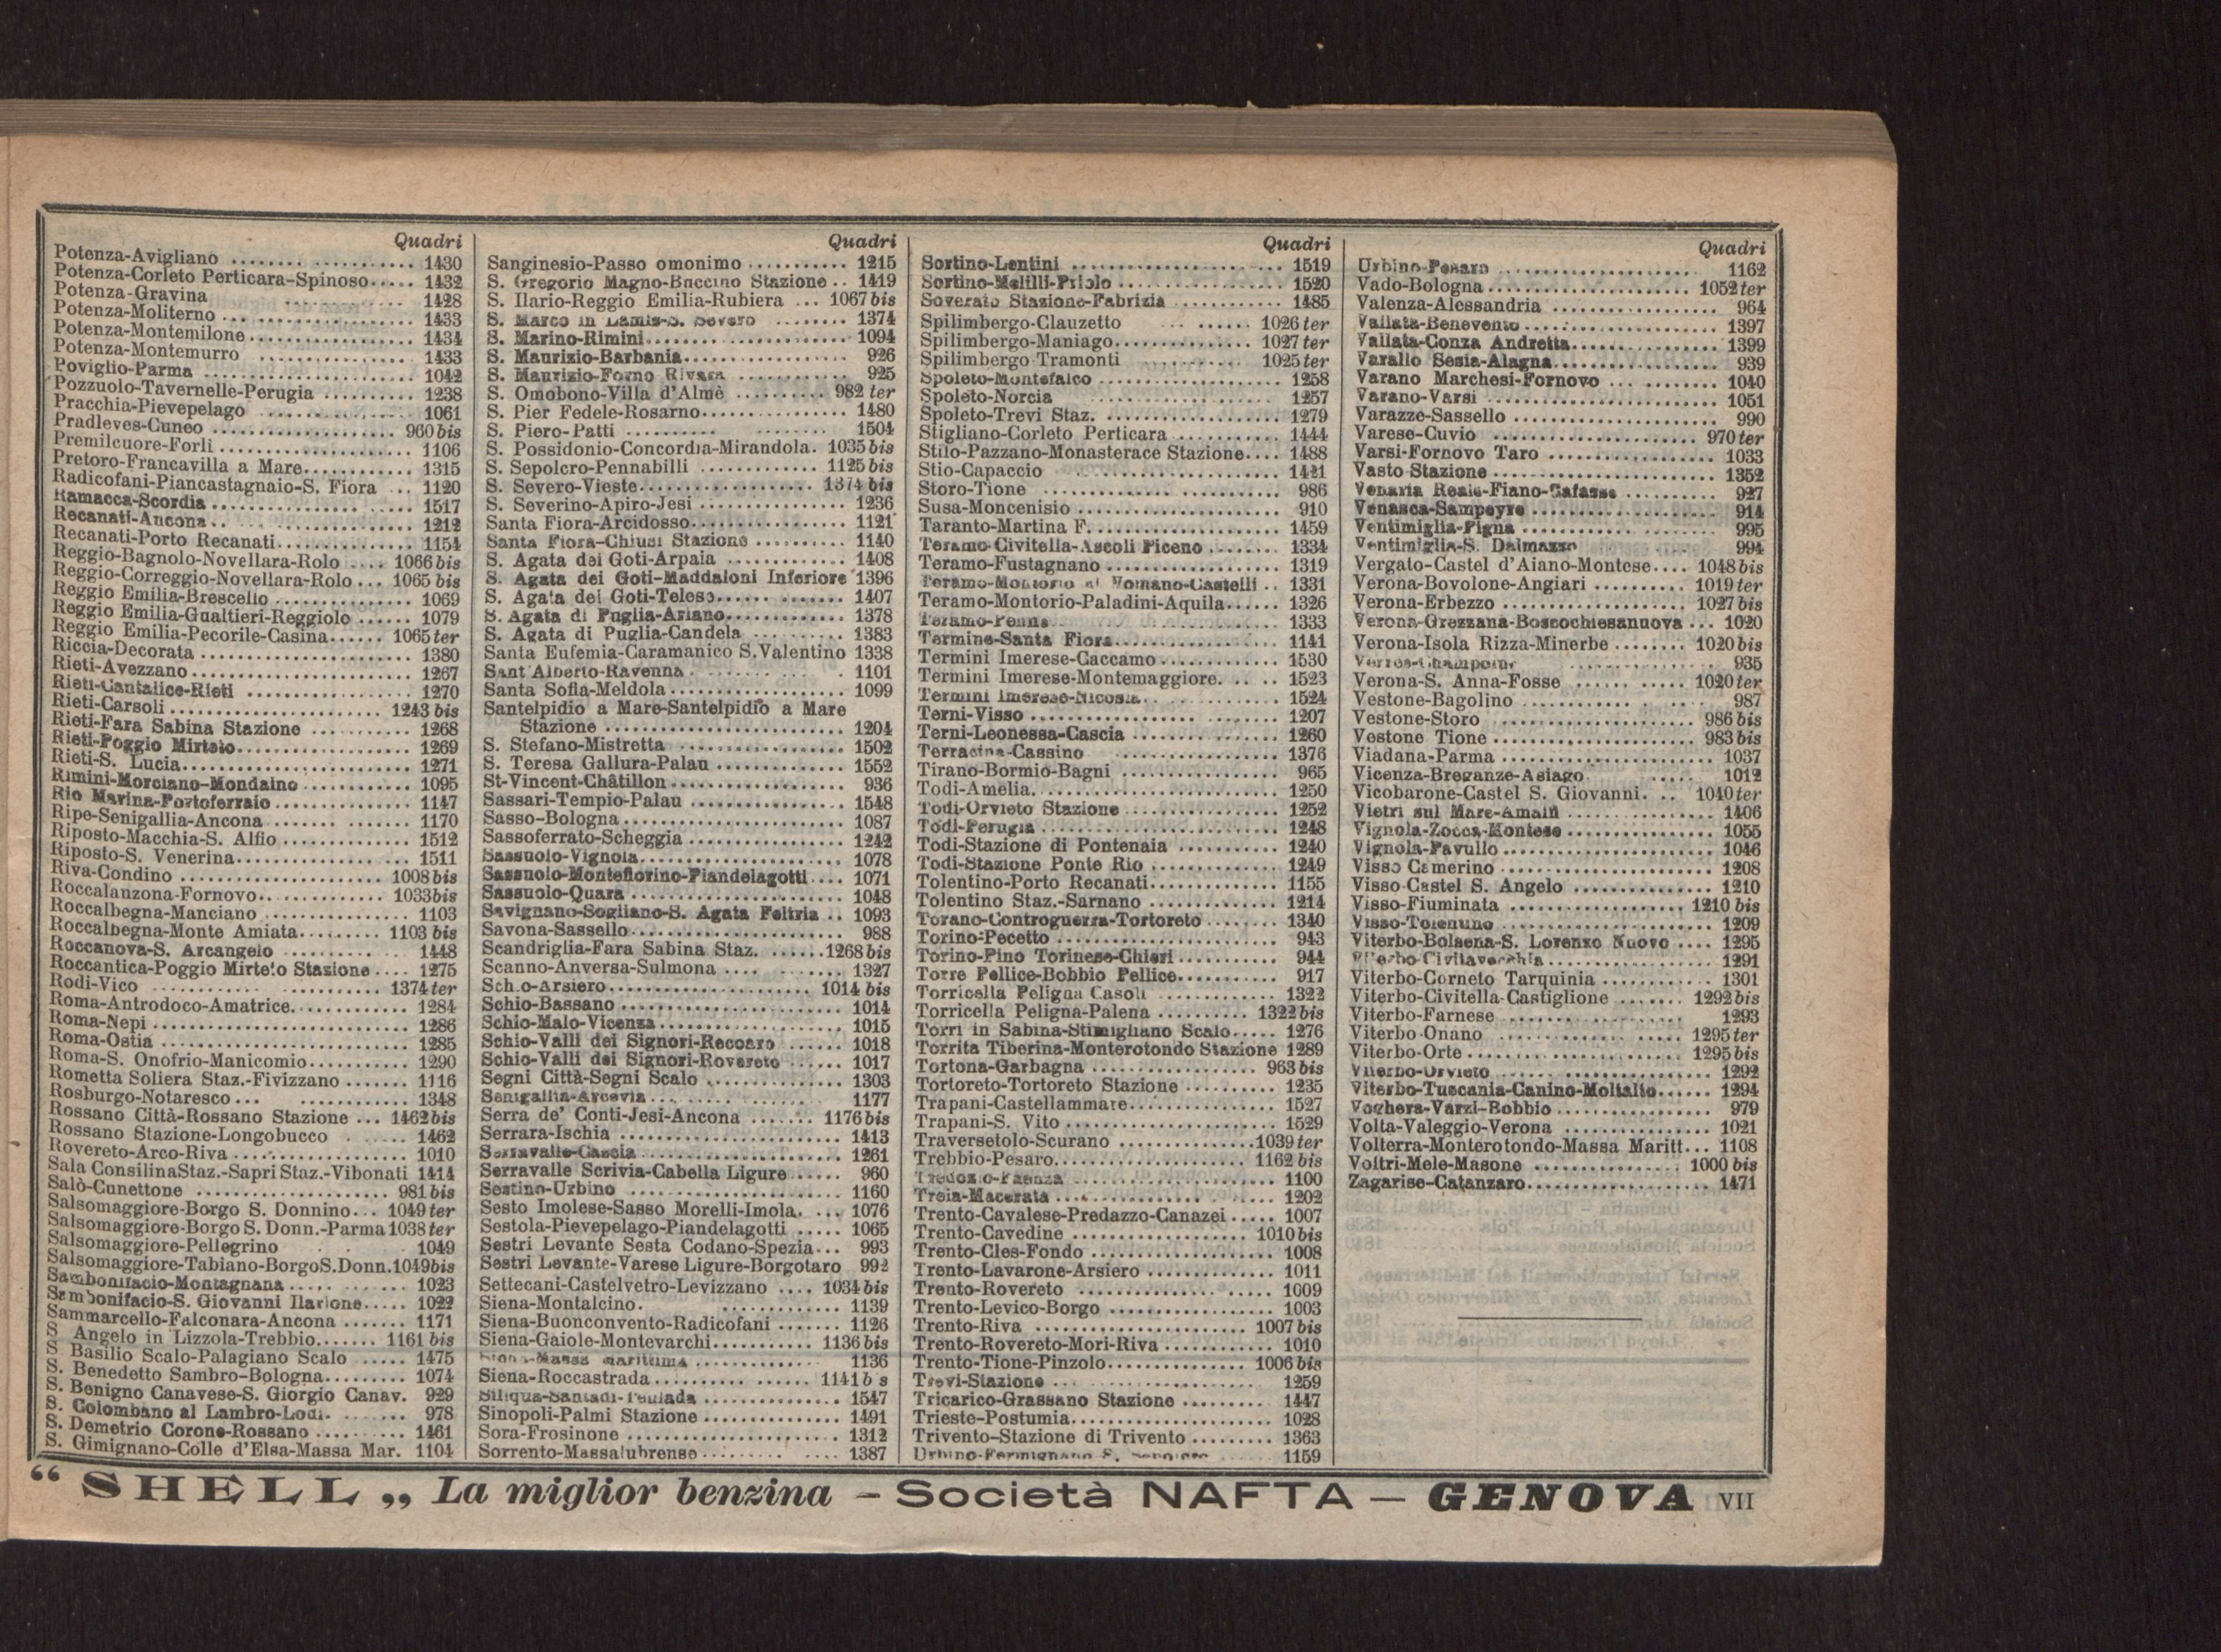 Quadri
Potenza-Avigliano 1430
Potenza-Corleto Perticara-Spinoso 1432
Potenza-Gravina 1428
Potenza-Moliterno 1433
Potenza-Montemilone 1434
Potenza-Montemurro 1433
Poviglio-Parma 1042
Pozzuolo-Tavernelle-Perugia 1238
Pracchia-Pievepelago 1061
Pradleves-Cuneo 960 bis
Premilcuore-Forlì 1106
Pretoro-Francavilla a Mare 1315
Radicofani-Piancastagnaio-S. Fiora 1120
Ramacca-Scordia 1517
Recanati-Ancona 1212
Recanati-Porto Recanati 1154
Reggio-Bagnolo-Novellara-Rolo 1066 bis
Reggio-Correggio-Novellara-Rolo 1065 bis
Reggio Emilia-Brescello 1069
Reggio Emilia-Gualtieri-Reggiolo 1079
Reggio Emilia-Pecorile-Casina 1065 ter
Riccia-Decorata 1380
Rieti-Avezzano 1267
Rieti-Cantalice-Rieti 1270
Rieti-Carsoli 1243 bis
Rieti-Fara Sabina Stazione 1268
Rieti-Poggio Mirteto 1269
Rieti-S. Lucia 1271
Rimini-Morciano-Mondaino 1095
Rio Marina-Portoferraio 1147
Ripe-Senigallia-Ancona 1170
Riposto-Macchia-S. Alfio 1512
Riposto-S. Venerina 1511
Riva-Condino 1008 bis
Roccalanzona-Fornovo 1033 bis
Roccalbegna-Manciano 1103
Roccalbegna-Monte Amiata 1103 bis
Roccanova-S. Arcangelo 1448
Roccantica-Poggio Mirteto Stazione 1275
Rodi-Vico 1374 ter
Roma-Antrodoco-Amatrice 1284
Roma-Nepi 1286
Roma-Ostia 1285
Roma-S. Onofrio-Manicomio 1290
Rometta Soliera Staz.-Fivizzano 1116
Rosburgo-Notaresco 1348
Rossano Città-Rossano Stazione 1462 bis
Rossano Stazione-Longobucco 1462
Rovereto-Arco-Riva 1010
Sala Consilina Staz.-Sapri Staz.-Vibonati 1414
Salò-Cunettone 981 bis
Salsomaggiore-Borgo S. Donnino 1049 ter
Salsomaggiore-Borgo S. Donn.-Parma 1038 ter
Salsomaggiore-Pellegrino 1049
Salsomaggiore-Tabiano-Borgo S. Donn. 1049 bis
Sambonifacio-Montagnana 1023
Sambonifacio-S. Giovanni Ilarione 1022
Sammarcello-Falconara-Ancona 1171
S Angelo in Lizzola-Trebbio 1161 bis
S Basilio Scalo-Palagiano Scalo 1475
S. Benedetto Sambro-Bologna 1074
S. Benigno Canavese-S. Giorgio Canav. 929
S. Colombano al Lambro-Lodi 978
S. Demetrio Corone-Rossano 1461
S. Gimignano-Colle d'Elsa-Massa Mar. 1104
Quadri
Sanginesio-Passo omonimo 1215
S. Gregorio Magno-Buccino Stazione 1419
S. Ilario-Reggio Emilia-Rubiera 1067 bis
S. Marco in Lamis-S. Severo 1374
S. Marino-Rimini 1094
S. Maurizio-Barbania 926
S. Maurizio-Forno Rivara 925
S. Omobono-Villa d'Almè 982 ter
S. Pier Fedele-Rosarno 1480
S. Piero-Patti 1504
S. Possidonio-Concordia-Mirandola. 1035 bis
S. Sepolcro-Pennabilli 1125 bis
S. Severo-Vieste 1374 bis
S. Severino-Apiro-Jesi 1236
Santa Fiora-Arcidosso 1121
Santa Fiora-Chiusi Stazione 1140
S. Agata dei Goti-Arpaia 1408
S. Agata dei Goti-Maddaloni Inferiore 1396
S. Agata dei Goti-Telese 1407
S. Agata di Puglia-Ariano 1378
S. Agata di Puglia-Candela 1383
Santa Eufemia-Caramanico S. Valentino 1338
Sant'Alberto-Ravenna 1101
Santa Sofia-Meldola 1099
Santelpidio a Mare-Santelpidio a Mare
Stazione 1204
S. Stefano-Mistretta 1502
S. Teresa Gallura-Palau 1552
St-Vincent-Châtillon 936
Sassari-Tempio-Palau 1548
Sasso-Bologna 1087
Sassoferrato-Scheggia 1242
Sassuolo-Vignola 1078
Sassuolo-Montefiorino-Piandelagotti 1071
Sassuolo-Quara 1048
Savignano-Sogliano-S. Agata Feltria 1093
Savona-Sassello 988
Scandriglia-Fara Sabina Staz. 1268 bis
Scanno-Anversa-Sulmona 1327
Schio-Arsiero 1014 bis
Schio-Bassano 1014
Schio-Malo-Vicenza 1015
Schio-Valli dei Signori-Recoaro 1018
Schio-Valli dei Signori-Rovereto 1017
Segni Città-Segni Scalo 1303
Senigallia-Arcevia 1177
Serra de' Conti-Jesi-Ancona 1176 bis
Serrara-Ischia 1413
Serravalle-Cascia 1261
Serravalle Scrivia-Cabella Ligure 960
Sestino-Urbino 1160
Sesto Imolese-Sasso Morelli-Imola. 1076
Sestola-Pievepelago-Piandelagotti 1065
Sestri Levante Sesta Codano-Spezia 993
Sestri Levante-Varese Ligure-Borgotaro 992
Settecani-Castelvetro-Levizzano 1034 bis
Siena-Montalcino. 1139
Siena-Buonconvento-Radicofani 1126
Siena-Gaiole-Montevarchi 1136 bis
Siena-Massa Marittima 1136
Siena-Roccastrada 1141 b s
Siliqua-Santadi-Teulada 1547
Sinopoli-Palmi Stazione 1491
Sora-Frosinone 1312
Sorrento-Massalubrense 1387
Quadri
Sortino-Lentini 1519
Sortino-Melilli-Priolo 1520
Soverato Stazione-Fabrizia 1485
Spilimbergo-Clauzetto 1026 ter
Spilimbergo-Maniago 1027 ter
Spilimbergo Tramonti 1025 ter
Spoleto-Montefalco 1258
Spoleto-Norcia 1257
Spoleto-Trevi Staz. 1279
Stigliano-Corleto Perticara 1444
Stilo-Pazzano-Monasterace Stazione 1488
Stio-Capaccio 1421
Storo-Tione 986
Susa-Moncenisio 910
Taranto-Martina F. 1459
Teramo-Civitella-Ascoli Piceno 1334
Teramo-Fustagnano 1319
Teramo-Montorio al Vomano-Castelli 1331
Teramo-Montorio-Paladini-Aquila 1326
Teramo-Penne 1333
Termine-Santa Fiora 1141
Termini Imerese-Caccamo 1530
Termini Imerese-Montemaggiore. 1523
Termini Imerese-Nicosia 1524
Terni-Visso 1207
Terni-Leonessa-Cascia 1260
Terracina-Cassino 1376
Tirano-Bormio-Bagni 965
Todi-Amelia 1250
Todi-Orvieto Stazione 1252
Todi-Perugia 1248
Todi-Stazione di Pontenaia 1240
Todi-Stazione Ponte Rio 1249
Tolentino-Porto Recanati 1155
Tolentino Staz.-Sarnano 1214
Torano-Controguerra-Tortoreto 1340
Torino-Pecetto 943
Torino-Pino Torinese-Chieri 944
Torre Pellice-Bobbio Pellice 917
Torricella Peligna Casoli 1322
Torricella Peligna-Palena 1322 bis
Torri in Sabina-Stimigliano Scalo 1276
Torrita Tiberina-Monterotondo Stazione 1289
Tortona-Garbagna 963 bis
Tortoreto-Tortoreto Stazione 1235
Trapani-Castellammare 1527
Trapani-S. Vito 1529
Traversetolo-Scurano 1039 ter
Trebbio-Pesaro 1162 bis
Tredozio-Faenza 1100
Treia-Macerata 1202
Trento-Cavalese-Predazzo-Canazei 1007
Trento-Cavedine 1010 bis
Trento-Cles-Fondo 1008
Trento-Lavarone-Arsiero 1011
Trento-Rovereto 1009
Trento-Levico-Borgo 1003
Trento-Riva 1007 bis
Trento-Rovereto-Mori-Riva 1010
Trento-Tione-Pinzolo 1006 bis
Trevi-Stazione 1259
Tricarico-Grassano Stazione 1447
Trieste-Postumia 1028
Trivento-Stazione di Trivento 1363
Urbino-Fermignano S. 1159
Quadri
Urbino-Pesaro 1162
Vado-Bologna 1052 ter
Valenza-Alessandria 964
Vallata-Benevento 1397
Vallata-Conza Andretta 1399
Varallo Sesia-Alagna 939
Varano Marchesi-Fornovo 1040
Varano-Varsi 1051
Varazze-Sassello 990
Varese-Cuvio 970 ter
Varsi-Fornovo Taro 1033
Vasto Stazione 1352
Venaria Reale-Fiano-Cafasse 927
Venasca-Sampeyre 914
Ventimiglia-Pigna 995
Ventimiglia-S. Dalmazzo 994
Vergato-Castel d'Aiano-Montese 1048 bis
Verona-Bovolone-Angiari 1019 ter
Verona-Erbezzo 1027 bis
Verona-Grezzana-Boscochiesanuova 1020
Verona-Isola Rizza-Minerbe 1020 bis
Verres-Champoluc 935
Verona-S. Anna-Fosse 1020 ter
Vestone-Bagolino 987
Vestone-Storo 986 bis
Vestone Tione 983 bis
Viadana-Parma 1037
Vicenza-Breganze-Asiago 1012
Vicobarone-Castel S. Giovanni. 1040 ter
Vietri sul Mare-Amalfi 1406
Vignola-Zocca-Montese 1055
Vignola-Pavullo 1046
Visso Camerino 1208
Visso Castel S. Angelo 1210
Visso-Fiuminata 1210 bis
Visso-Tolentino 1209
Viterbo-Bolsena-S. Lorenzo Nuovo 1295
Viterbo Civitavecchia 1291
Viterbo-Corneto Tarquinia 1301
Viterbo-Civitella-Castiglione 1292 bis
Viterbo-Farnese 1293
Viterbo Onano 1295 ter
Viterbo-Orte 1295 bis
Viterbo-Orvieto 1292
Viterbo-Tuscania-Canino-Moltalto 1294
Voghera-Varzi-Bobbio 979
Volta-Valeggio-Verona 1021
Volterra-Monterotondo-Massa Maritt. 1108
Voltri-Mele-Masone 1000 bis
Zagarise-Catanzaro 1471
“SHELL„ La miglior benzina – Società NAFTA – GENOVA VII